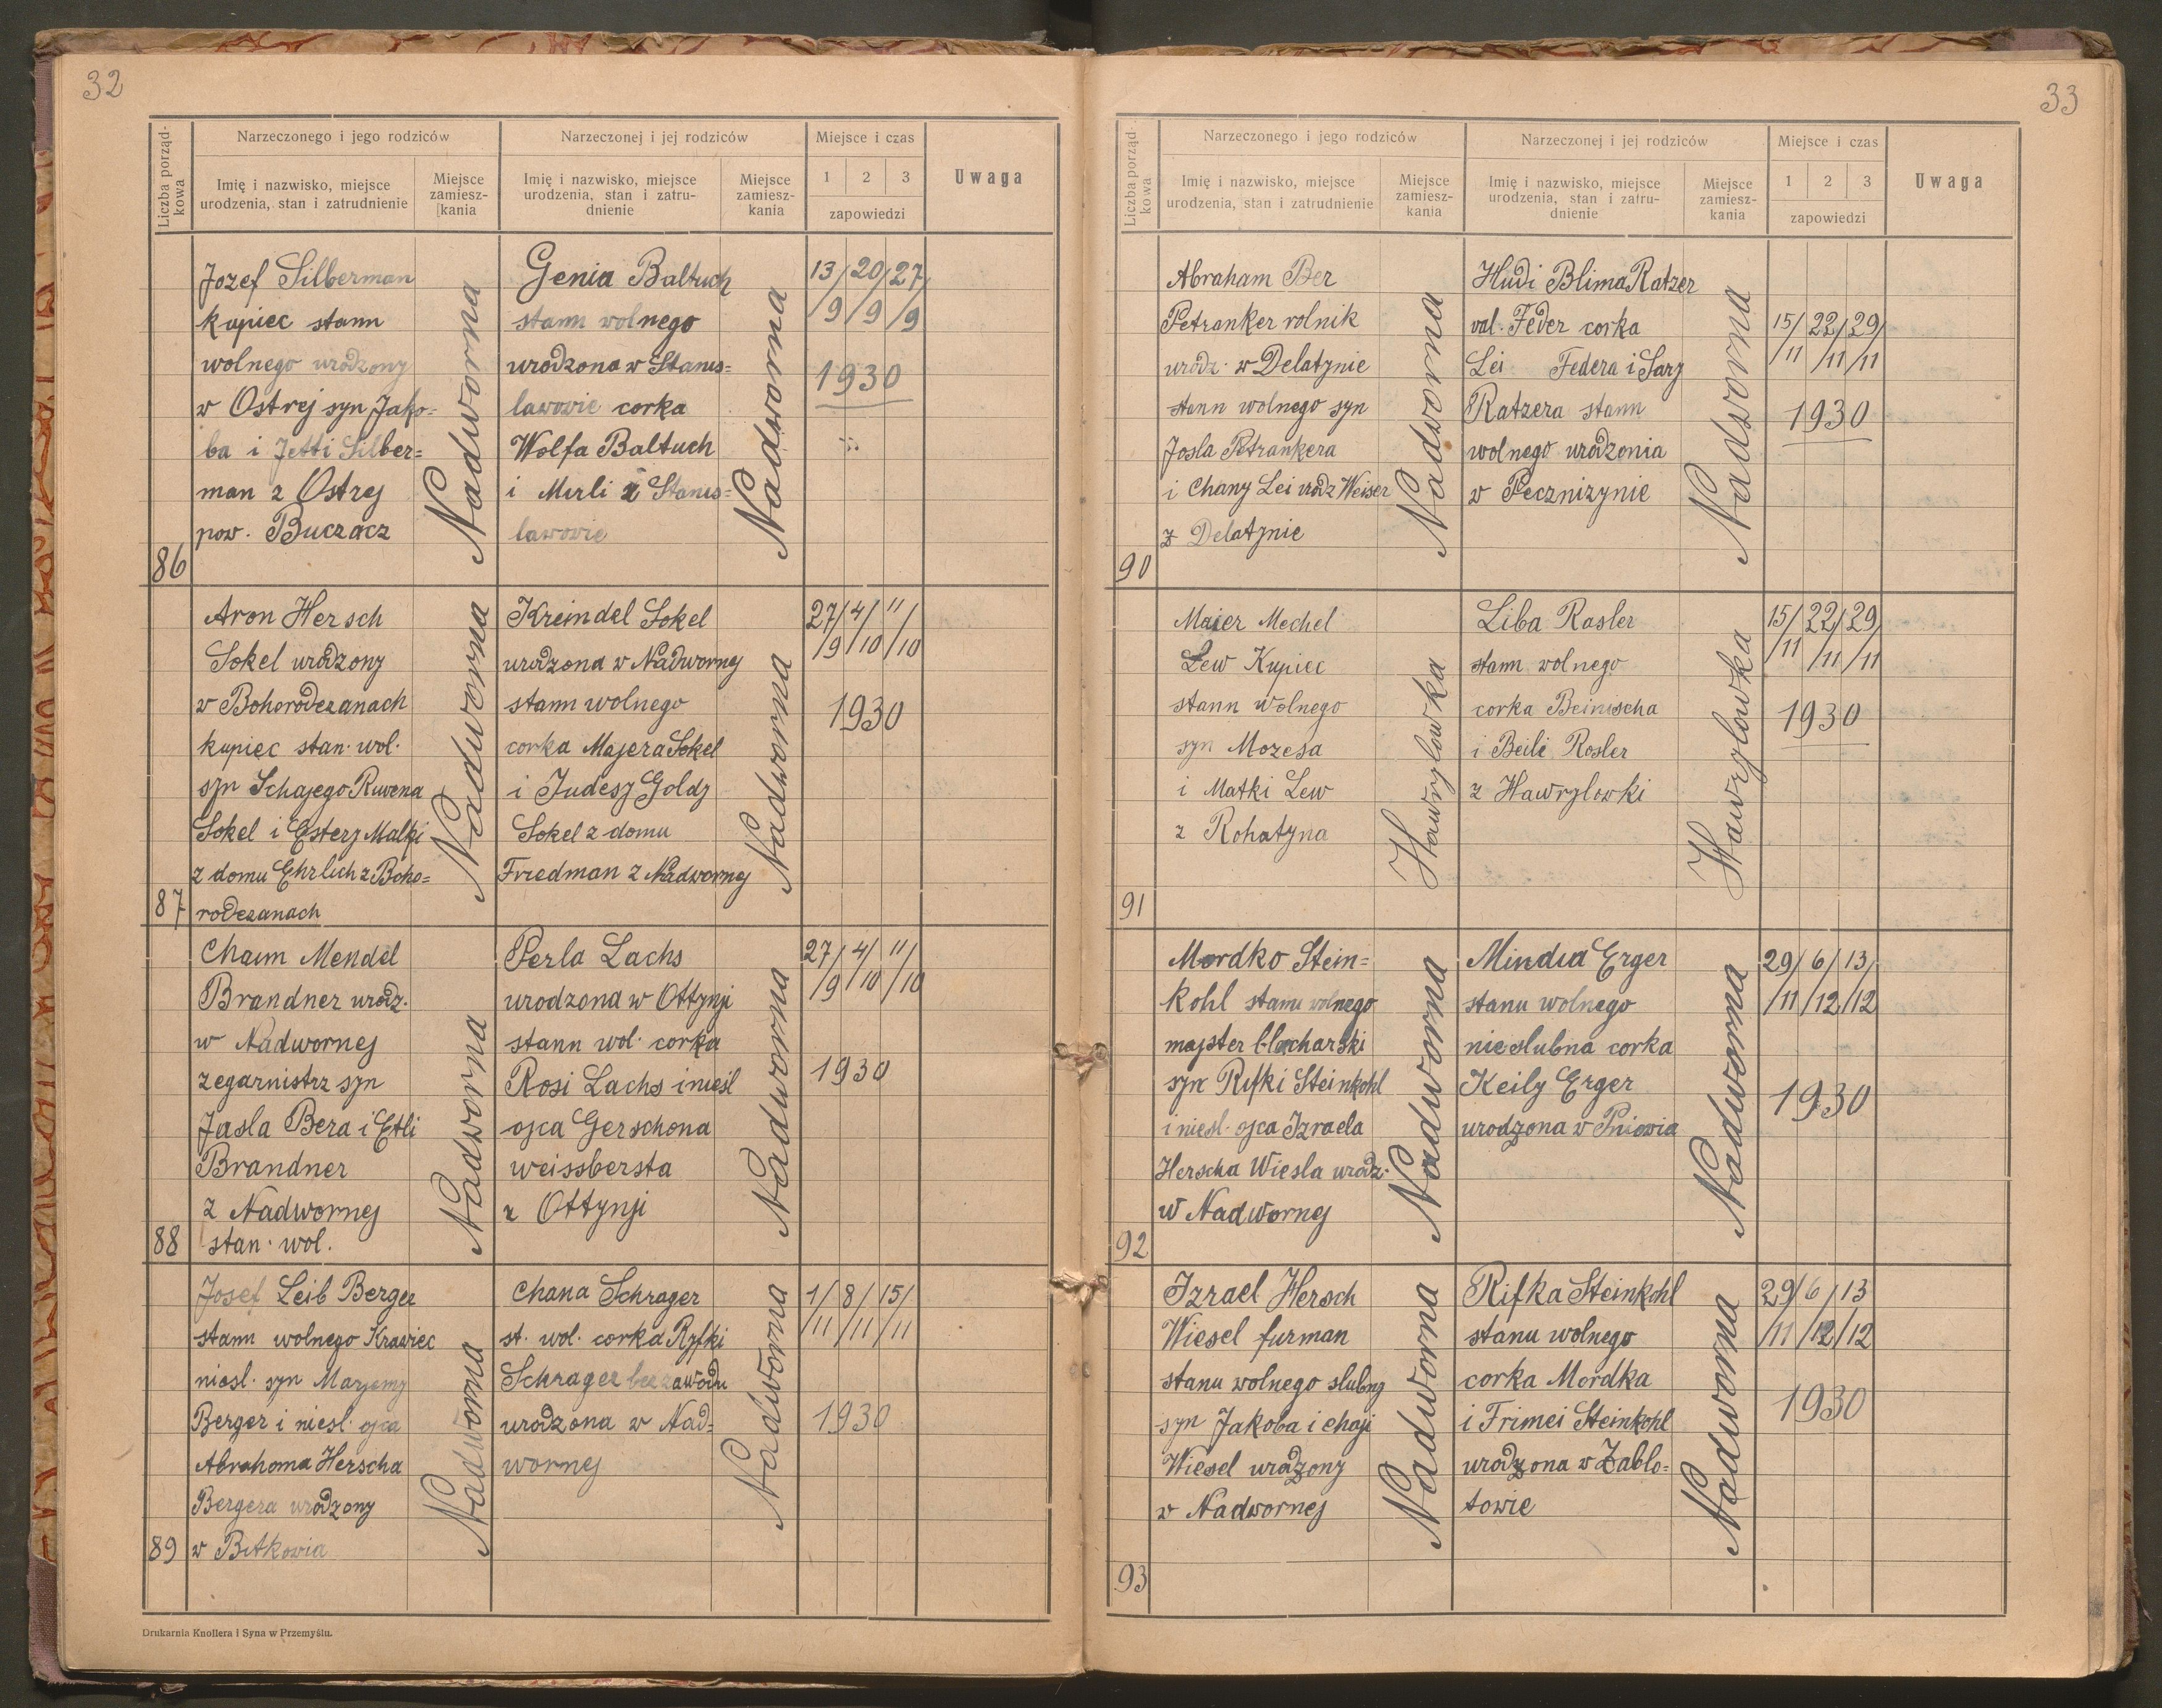 32
Liczba porząd-
kowa
Narzeczonego i jego rodziców
Imię i nazwisko, miejsce
urodzenia, stan i zatrudnienie
Miejsce
zamiesz-
kania
Narzeczonej i jej rodziców
Imię i nazwisko, miejsce
urodzenia, stan i zatru-
dnienie
Miejsce
zamiesz-
kania
Miejsce i czas
1 2 3
zapowiedzi
Uwaga
86
Jozef Silberman
kupiec stann
wolnego urodzony
w Ostrej syn Jako=
ba i Jetti Silber=
man z Ostrej
pow. Buczacz
Nadworna
Genia Baltuch
stann wolnego
urodzona w Stanis=
lawowie corka
Wolfa Baltuch
i Mirli z Stanis=
lawowie
Nadworna
13/ 20/ 27/
/9 /9 /9
1930
87
Aron Hersch
Sokel urodzony
w Bohorodczanach
kupiec stan. wol.
syn Schajego Ruwena
Sokel i Estery Malki
z domu Ehrlich z Boho=
rodczanach
Nadworna
Kreindel Sokel
urodzona w Nadwornej
stann wolnego
corka Majera Sokel
i Judesy Goldy
Sokel z domu
Friedman z Nadwornej
Nadworna
27/ 4/ 11/
/9 /10 /10
1930
88
Chaim Mendel
Brandner urodz.
w Nadwornej
zegarnistrz syn
Jasla Bera i Etli
Brandner
z Nadwornej
stan. wol.
Nadworna
Perla Lachs
urodzona w Ottynji
stann wol. corka
Rosi Lachs i niesl
ojca Gerschona
weissbersta
z Ottynji
Nadworna
27/ 4/ 11/
/9 /10 /10
1930
89
Josef Leib Berger
stann wolnego Krawiec
niesl. syn Marjemy
Berger i niesl. ojca
Abrahama Herscha
Bergera urodzony
w Bitkowia
Nadworna
Chana Schrager
st. wol. corka Ryfki
Schrager bez zawodu
urodzona w Nad=
wornej
Nadworna
1/ 8/ 15/
/11 /11 /11
1930
Drukarnia Knollera i Syna w Przemyślu.
33
Liczba porząd-
kowa
Narzeczonego i jego rodziców
Imię i nazwisko, miejsce
urodzenia, stan i zatrudnienie
Miejsce
zamiesz-
kania
Narzeczonej i jej rodziców
Imię i nazwisko, miejsce
urodzenia, stan i zatru-
dnienie
Miejsce
zamiesz-
kania
Miejsce i czas
1 2 3
zapowiedzi
Uwaga
90
Abraham Ber
Petranker rolnik
urodz. w Delatynie
stann wolnego syn
Josla Petrankera
i Chany Lei urodz Weiser
z Delatynie
Nadworna
Hudi Blima Ratzer
val. Feder corka
Lei Federa i Sary
Ratzera stann
wolnego urodzonia
w Pecznizynie
Nadworna
15/ 22/ 29/
/11 /11 /11
1930
91
Maier Mechel
Lew Kupiec
stann wolnego
syn Mozesa
i Matki Lew
z Rohatyna
Hawrylowka
Liba Rasler
stann wolnego
corka Beinischa
i Beile Rosler
z Hawrylowki
Hawrylowka
15/ 22/ 29/
/11 /11 /11
1930
92
Mordko Stein=
kohl stanu wolnego
majster blacharski
syn Rifki Steinkohl
i niesl. ojca Izraela
Herscha Wiesla urodz.
w Nadwornej
Nadworna
Mindia Erger
stanu wolnego
nieslubna corka
Keily Erger
urodzona w Pniowia
Nadworna
29/ 6/ 13/
/11 /12 /12
1930
93
Izrael Hersch
Wiesel furman
stanu wolnego slubny
syn Jakoba i chaji
Wiesel urodzony
w Nadwornej
Nadworna
Rifka Steinkohl
stanu wolnego
corka Mordka
i Frimei Steinkohl
urodzona w Zablo=
towie
Nadworna
29/ 6/ 13
/11 /12 /12
1930